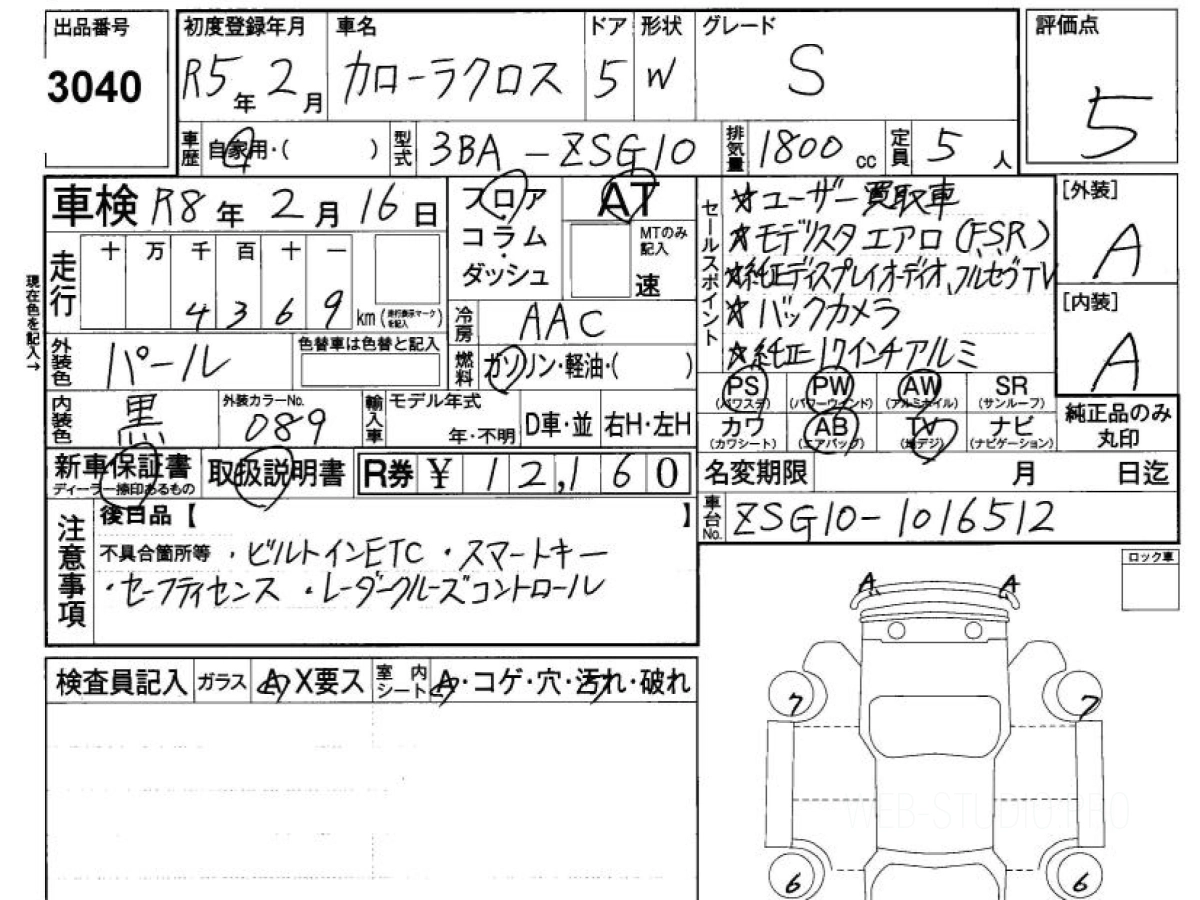 出品番号 3040
初度登録年月 R5年2月
車名 カローラクロス
ドア 5
形状 W
グレード S
評価点 5
車歴 自家用・( )
型式 3BA-ZSG10
排気量 1800 cc
定員 5人
車検 R8年2月16日
フロア
コラム
・
ダッシュ
AT
MTのみ記入
速
セールスポイント
☆ユーザー買取車
☆モデリスタエアロ(F.S.R)
☆純正ディスプレイオーディオ、フルセグTV
☆バックカメラ
☆純正17インチアルミ
[外装] A
[内装] A
現在色を記入→
走行 十 万 千 百 十 一
4 3 6 9 km (走行表示マークを記入)
冷房 AAC
外装色 パール
色替車は色替と記入
燃料 ガソリン・軽油・( )
PS (パワステ)
PW (パワーウインド)
AW (アルミホイル)
SR (サンルーフ)
カワ (カワシート)
AB (エアバッグ)
TV (地デジ)
ナビ (ナビゲーション)
純正品のみ丸印
内装色 黒
外装カラーNo. 089
輸入車 モデル年式 年・不明
D車・並
右H・左H
新車保証書
ディーラー捺印あるもの
取扱説明書
R券 ¥ 12,160
名変期限 月 日迄
車台No. ZSG10-1016512
注意事項
後日品【 】
不具合箇所等 ・ビルトインETC ・スマートキー
・セーフティセンス ・レーダークルーズコントロール
ロック車
A A
検査員記入
ガラス A X要ス
室内シート A・コゲ・穴・汚れ・破れ
7 7
WEB-STUDIO PRO
6 6